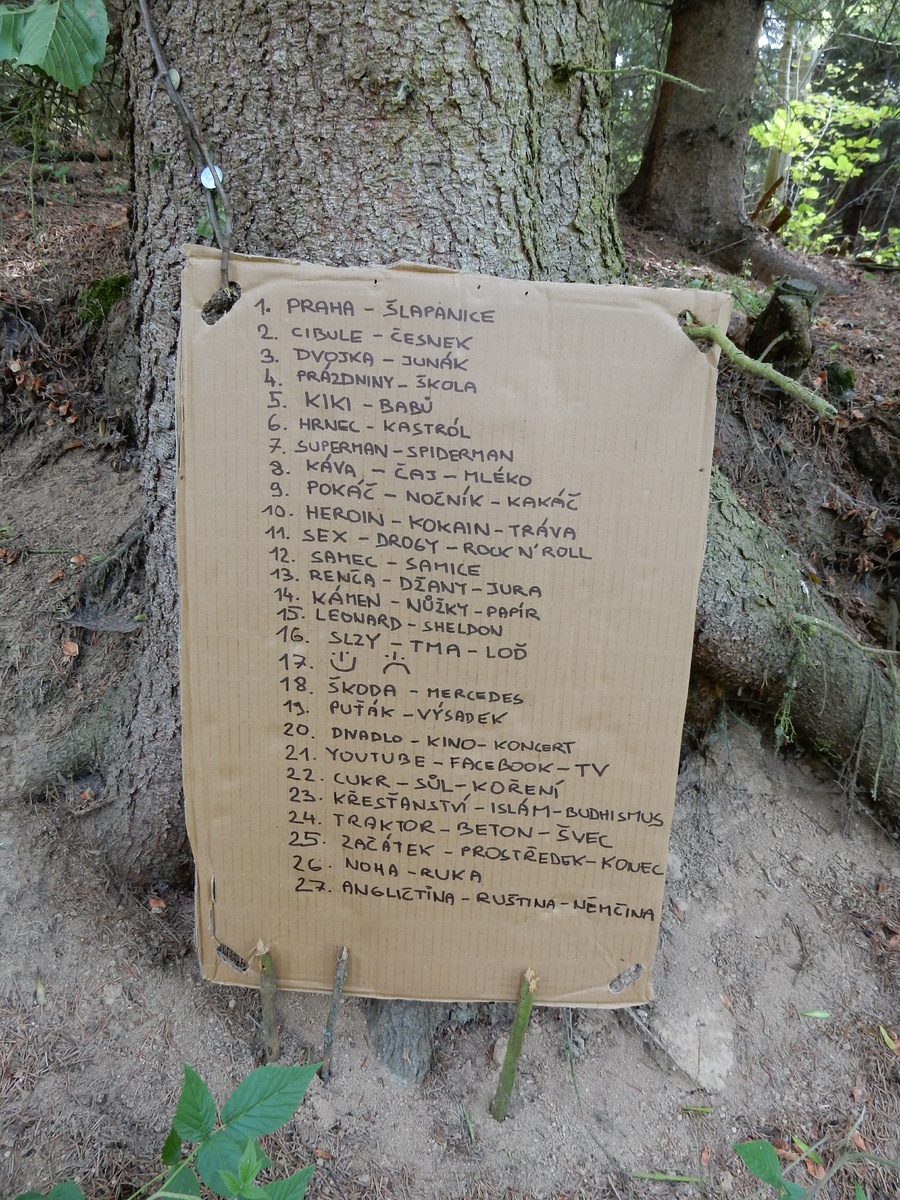 1. PRAHA - ŠLAPANICE
2. CIBULE - ČESNEK
3. DVOJKA - JUNÁK
4. PRÁZDNINY - ŠKOLA
5. KIKI - BABŮ
6. HRNEC - KASTRÓL
7. SUPERMAN - SPIDERMAN
8. KÁVA - ČAJ - MLÉKO
9. POKÁČ - NOČNÍK - KAKÁČ
10. HEROIN - KOKAIN - TRÁVA
11. SEX - DROGY - ROCK N' ROLL
12. SAMEC - SAMICE
13. RENČA - DŽANY - JURA
14. KÁMEN - NŮŽKY - PAPÍR
15. LEONARD - SHELDON
16. SLZY - TMA - LOĎ
17.
18. ŠKODA - MERCEDES
19. PUŤÁK - VÝSADEK
20. DIVADLO - KINO - KONCERT
21. YOUTUBE - FACEBOOK - TV
22. CUKR - SŮL - KOŘENÍ
23. KŘESŤANSTVÍ - ISLÁM - BUDHISMUS
24. TRAKTOR - BETON - ŠVEC
25. ZAČÁTEK - PROSTŘEDEK - KONEC
26. NOHA - RUKA
27. ANGLIČTINA - RUŠTINA - NĚMČINA